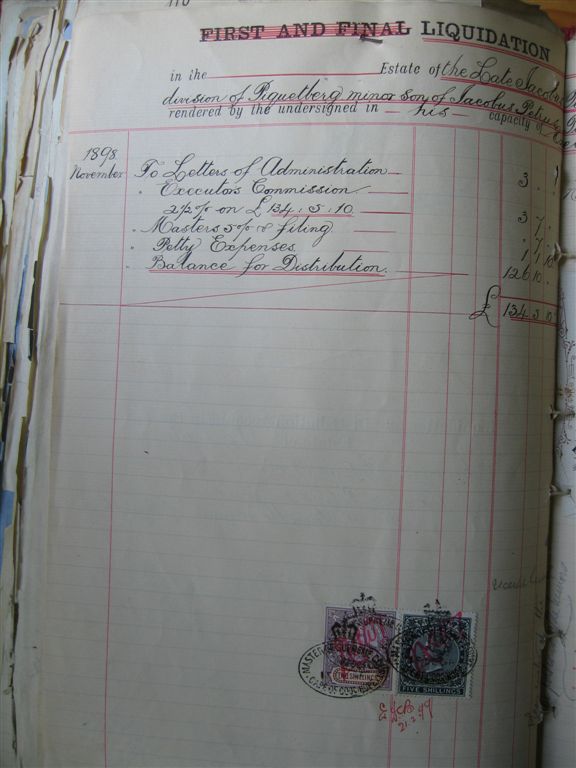 110
FIRST AND FINAL LIQUIDATION
in the Estate of the Late Jacobus
division of Piquetberg minor son of Jacobus Petrus
rendered by the undersigned in his capacity of
1898
November To Letters of Administration 3
" Executors Commission
2½% on £134.5.10 3 7
" Masters filing 7
" Petty Expenses 1 1 10
" Balance for Distribution. 126 10
£ 134 5 10
MASTER SUPREME
CAPE OF GOOD HOPE
FIVE SHILLINGS
21.2.99